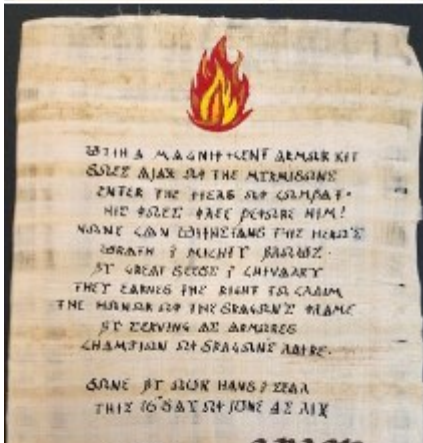 WITH A MAGNIFICENT ARMOR KIT
DOES AJAX OF THE MYRMIDONS
ENTER THE FIELD OF COMBAT.
HIS FOES FLEE BEFORE HIM!
NONE CAN WITHSTAND THIS HERO'S
WRATH & MIGHTY BLOWS.
BY GREAT DEEDS & CHIVALRY
THEY EARNED THE RIGHT TO CLAIM
THE HONOR OF THE DRAGON'S FLAME
BY SERVING AS ARMORED
CHAMPION OF DRAGON'S LAIRE.
DONE BY OUR HAND & SEAL
THIS 16 DAY OF JUNE AS LIX